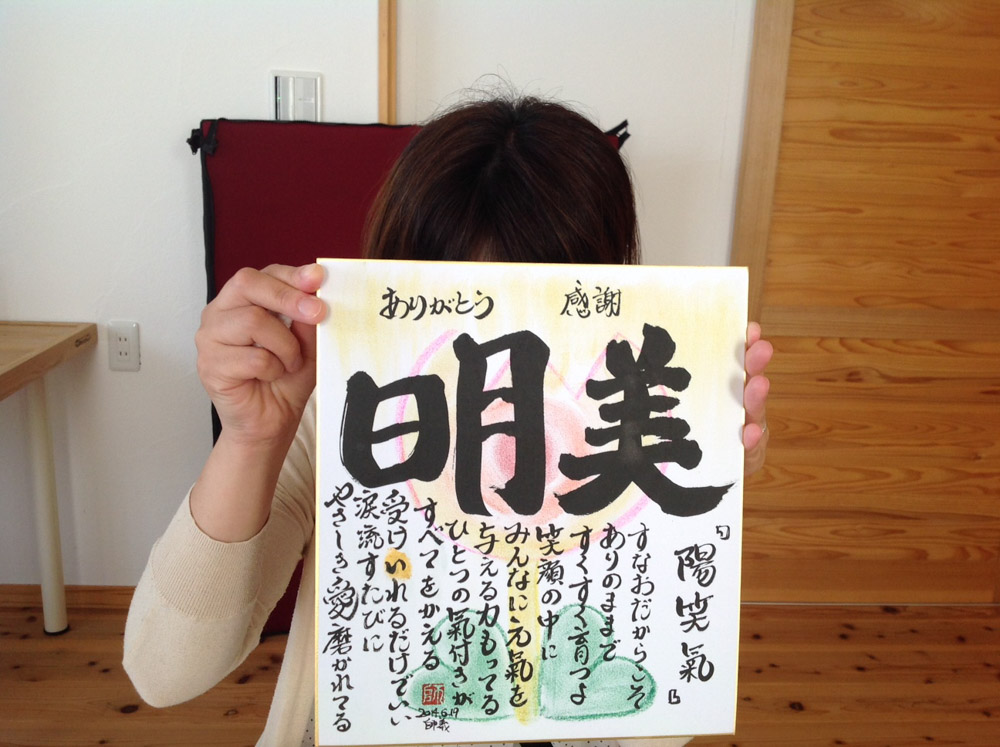 ありがとう
感謝
明美
『陽笑氣』
すなおだからこそ
ありのままで
すくすく育つよ
笑顔の中に
みんなに元氣を
与える力もってる
ひとつの氣付きが
すべてをかえる
受けいれるだけでいい
涙流すたびに
やさしき愛磨かれてる
2014.6.19